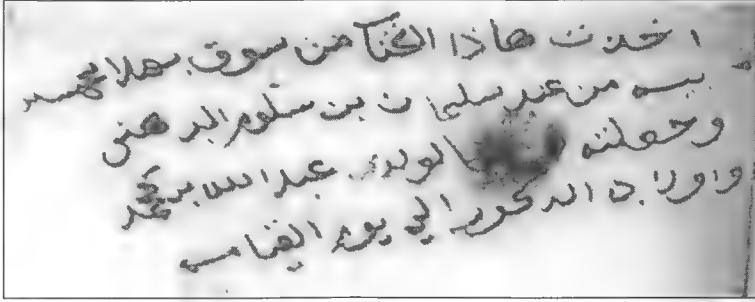 اخذت هاذا الكتا من سوق بهلا
بيسه من عند سليمان بن سلوم البر هني
وجعلته لولدي عبدالله بن محمد
واولاده الدكور الي يوم القيامه